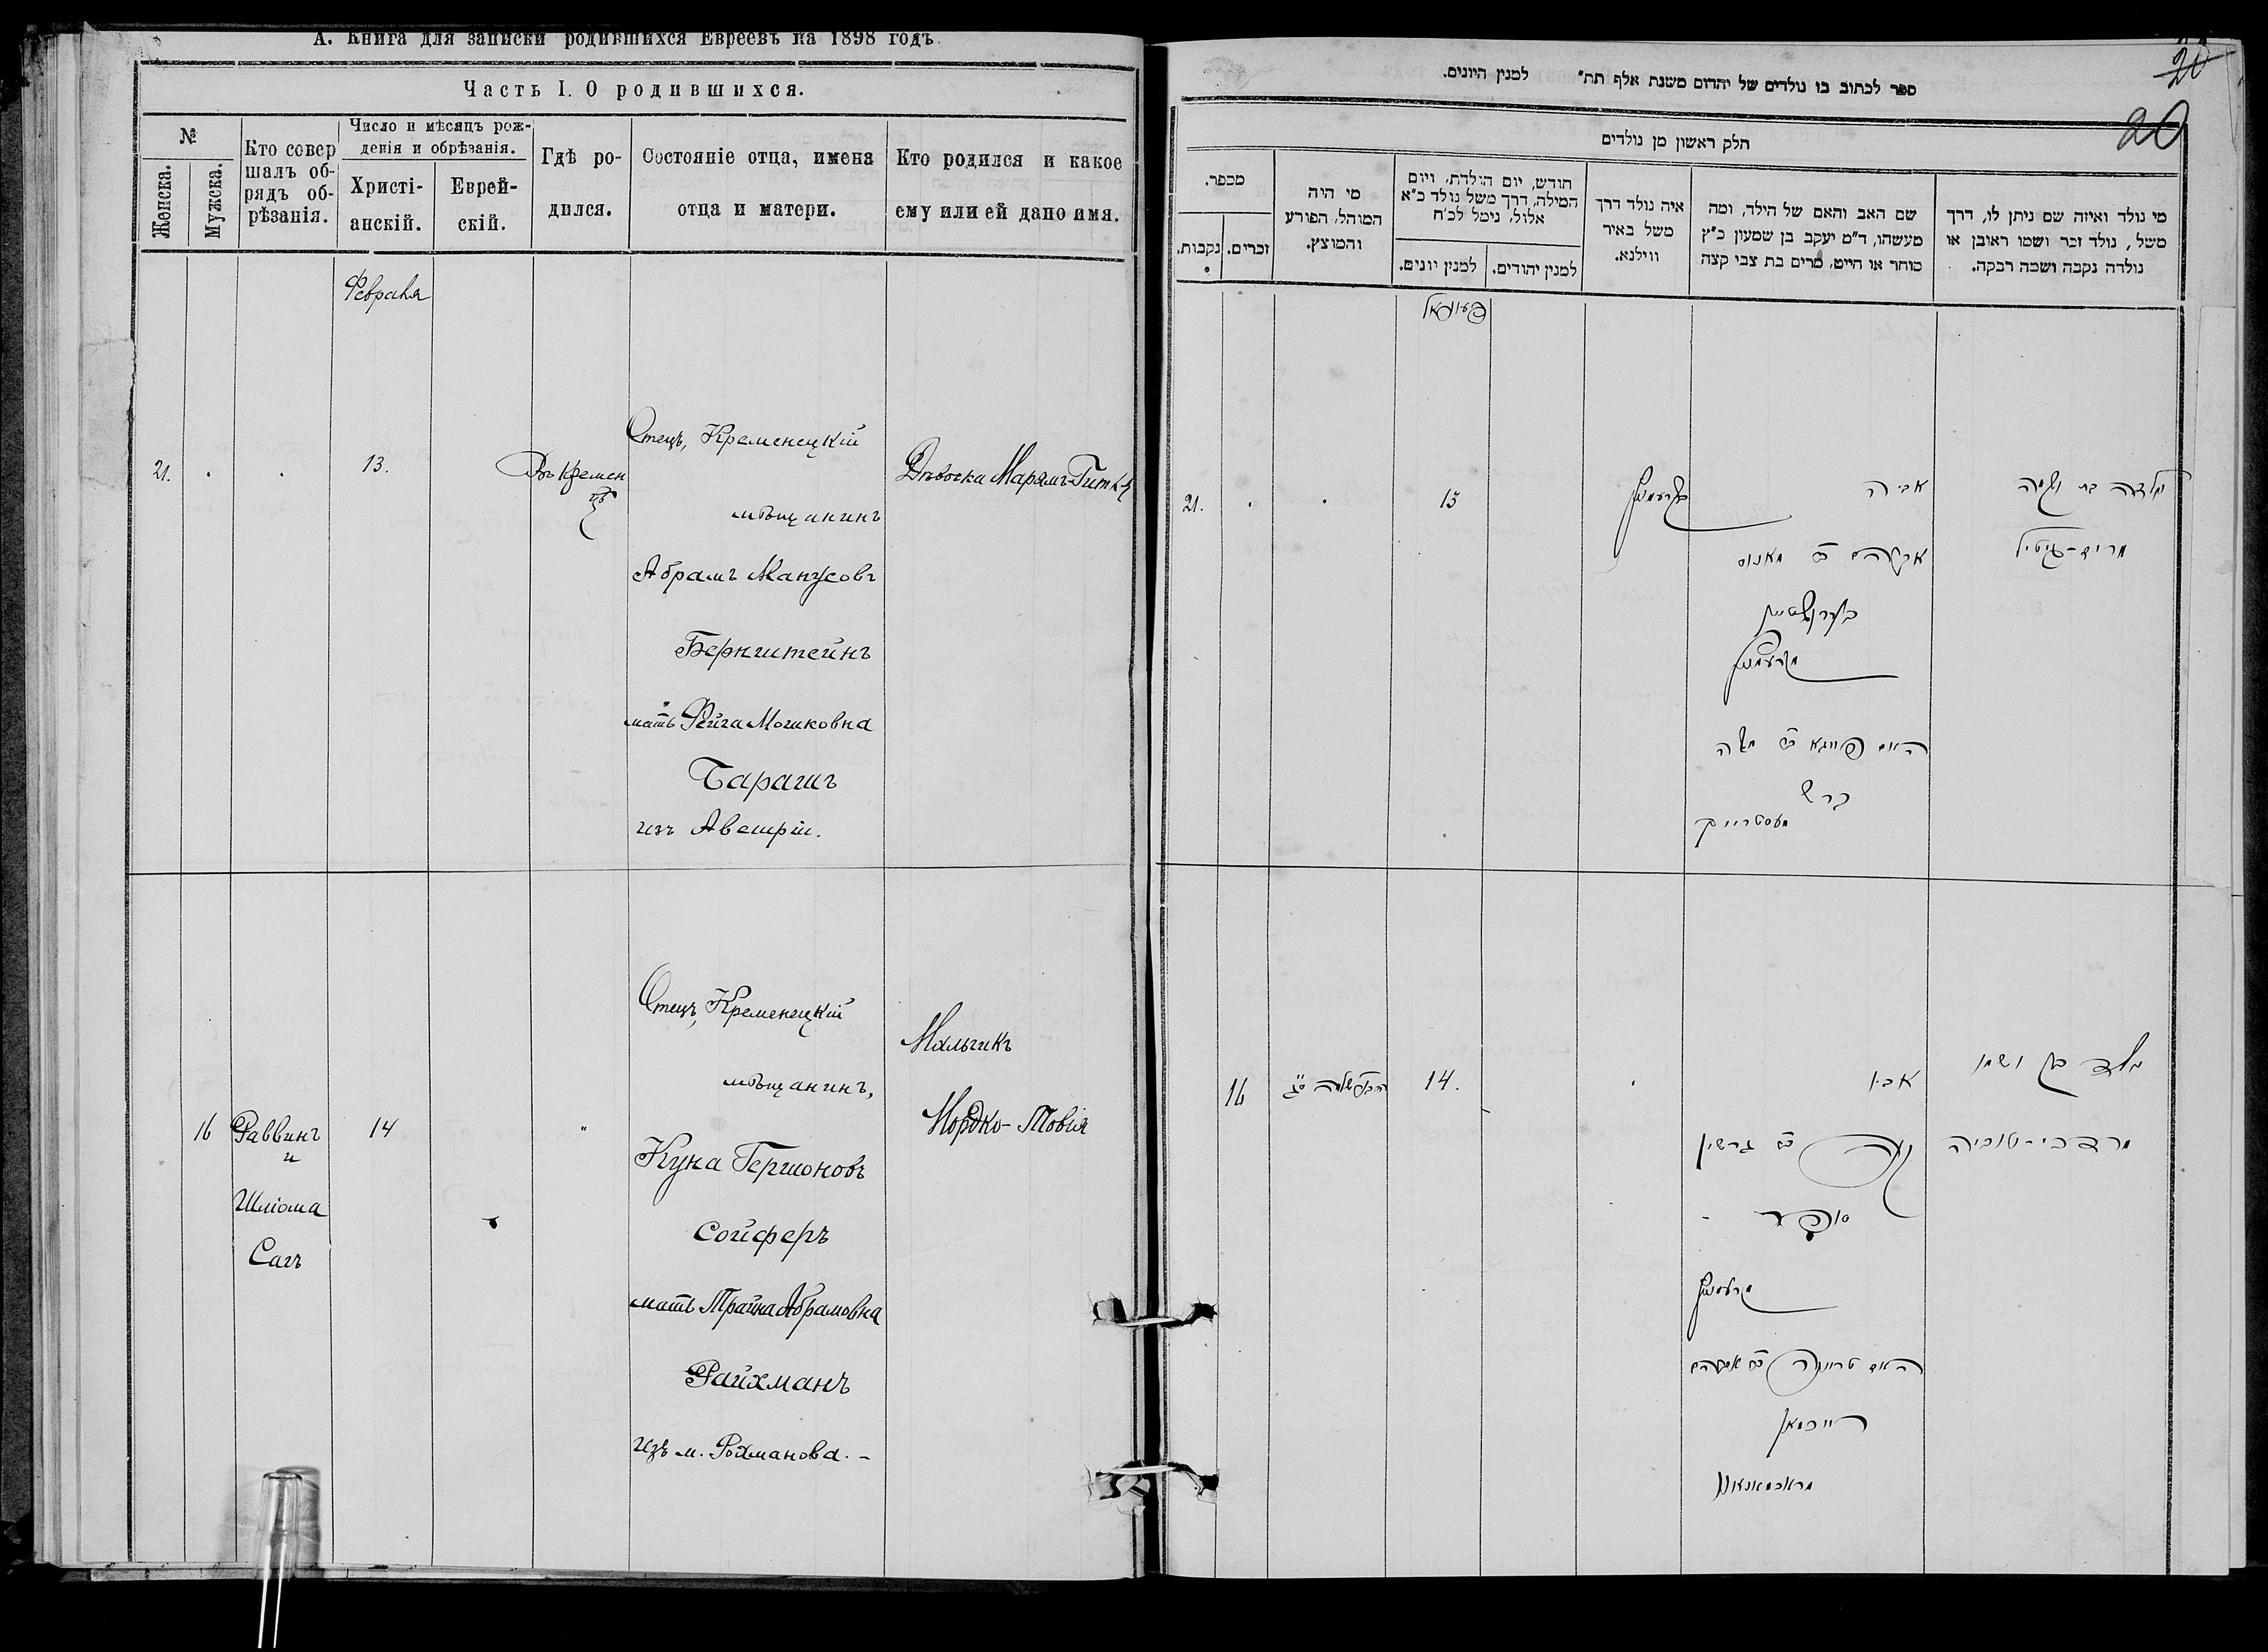 А. Книга для записки родившихся Евреевъ на 1898 годъ
Часть I. О родившихся.
№
Женска.
Мужска.
Кто совер
шалъ об-
рядъ об-
рѣзанія.
Число и мѣсяцъ рож-
денія и обрѣзанія.
Христі-
анскій.
Еврей-
скій.
Гдѣ ро-
дился.
Состояніе отца, имена
отца и матери.
Кто родился и какое
ему или ей дано имя.
Февраля
21.
13.
Въ Кремен
цѣ
Отецъ, Кременецкій
мѣщанинъ
Абрамъ Манусовъ
Бернштейнъ
мать Фейга Мошковна
Барашъ
изъ Австріи.
Дѣвочка Марямъ-Гитля
16
Раввинъ
и
Шліома
Сагъ
14
"
Отецъ, Кременецкій
мѣщанинъ,
Куна Гершоновъ
Сойферъ
мать Трайна Абрамовна
Райхманъ
изъ м. Рохманова. -
Мальчикъ
Мордко-Товія
20
20
ספר לכתוב בו נולדים של יהדים משנת אלף תת״ למנין היונים.
חלק ראשון מן נולדים
מספר.
נקבות.
זכרים.
מי היה
המוהל, הפורע
והמוצץ.
חודש, יום הולדת, ויום
המילה, דרך משל נולד כ״א
אלול, נימל לכ״ח
למנין יונים.
למנין יהודים.
איה נולד דרך
משל באיר
ווילנא.
שם האב והאם של הילד, ומה
מעשהו, ד״מ יעקב בן שמעון כ״ץ
סוחר או חייט, מרים בת צבי קצה
מי נולד ואיזה שם ניתן לו, דרך
משל, נולד זכר ושמו ראובן או
נולדה נקבה ושמה רבקה.
21.
13
אביה
אברהם ב״ר מאנוס
בערנשטיין
קרעמניץ
האם פייגא ב״ר משה
ברש
נולדה בת ושמה
מרים-גיטיל
16
14.
אביו
ב״ר גרשון
סופר
קרעמניץ
האם טריינה ב״ר אברהם
רייכמאן
נולד בן ושמו
מרדכי-טוביה